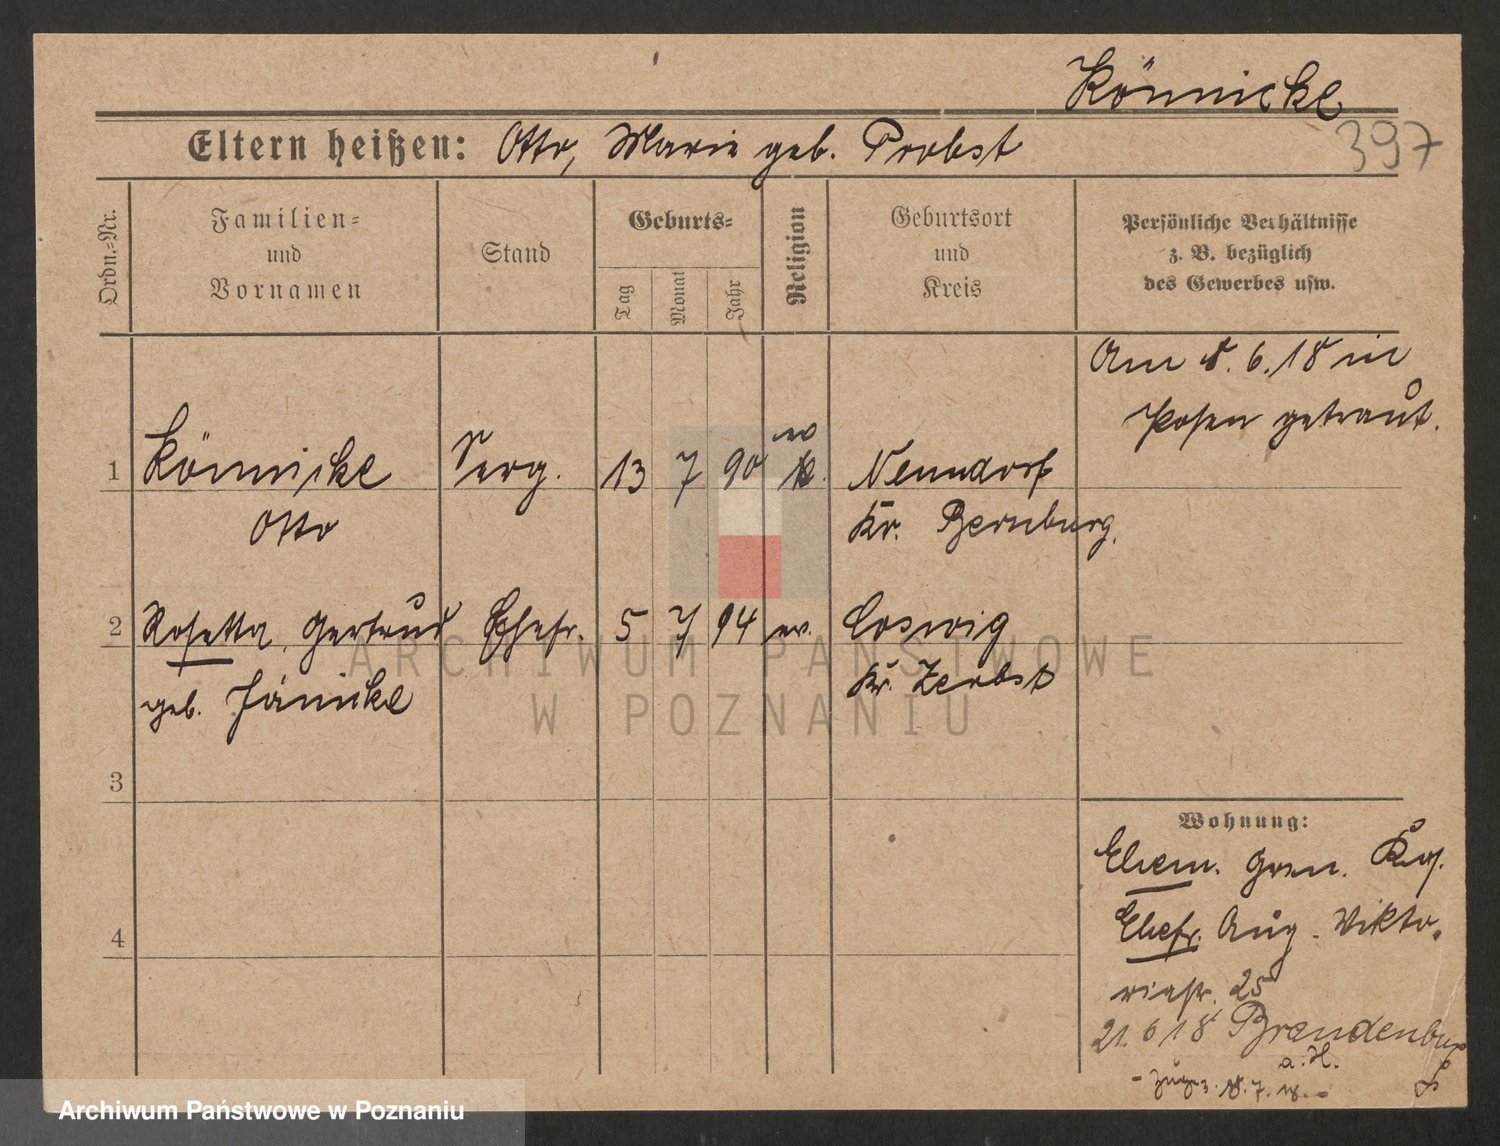 Könnicke
397
Eltern heißen: Otto, Marie geb. Probst
Ordn.-Nr.
Familien-
und
Vornamen
Stand
Geburts-
Tag
Monat
Jahr
Religion
Geburtsort
und
Kreis
Persönliche Verhältnisse
z. B. bezüglich
des Gewerbes usw.
Am 8. 6. 18 in
Posen getraut.
1 Könnicke Serg. 13 7 90 Nenndorf
Otto Kr. Bernburg.
2 Rosetta, Gertrud Ehefr. 5 7 94 ev. Coswig
geb. Jänicke Kr. Zerbst
3
4
Wohnung:
Ehem. Gren. Kas.
Ehefr. Aug. Vikto-
riastr. 25
21. 6 18 Brandenburg
a. H.
18. 7. 18.
ARCHIWUM PAŃSTWOWE
W POZNANIU
Archiwum Państwowe w Poznaniu